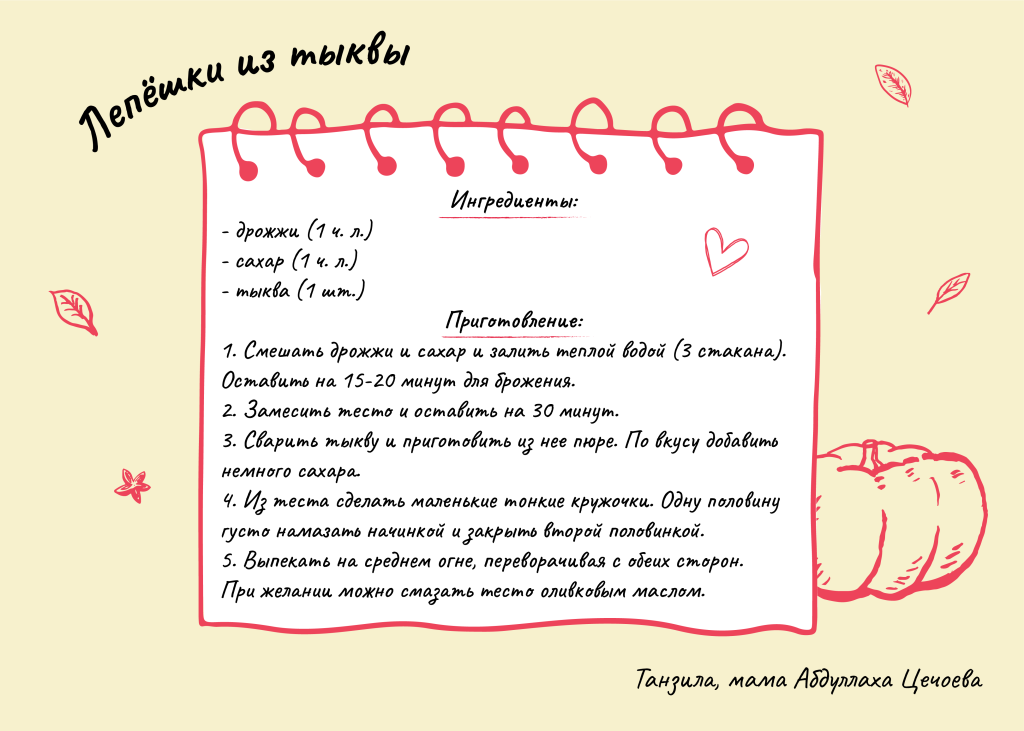 Лепёшки из тыквы
Ингредиенты:
- дрожжи (1 ч. л.)
- сахар (1 ч. л.)
- тыква (1 шт.)
Приготовление:
1. Смешать дрожжи и сахар и залить теплой водой (3 стакана).
Оставить на 15-20 минут для брожения.
2. Замесить тесто и оставить на 30 минут.
3. Сварить тыкву и приготовить из нее пюре. По вкусу добавить
немного сахара.
4. Из теста сделать маленькие тонкие кружочки. Одну половину
густо намазать начинкой и закрыть второй половинкой.
5. Выпекать на среднем огне, переворачивая с обеих сторон.
При желании можно смазать тесто оливковым маслом.
Танзила, мама Абдуллаха Цечоева